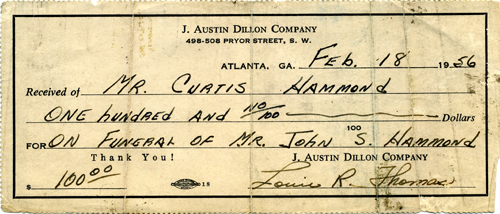 J. AUSTIN DILLON COMPANY
498-508 PRYOR STREET, S. W.
ATLANTA, GA. FEB. 18 1956
Received of MR. CURTIS HAMMOND
ONE hundred AND no/100 Dollars
FOR ON FUNERAL OF MR. JOHN S. HAMMOND
100
Thank You! J. AUSTIN DILLON COMPANY
$ 100.00 18 Louie R. Thomas